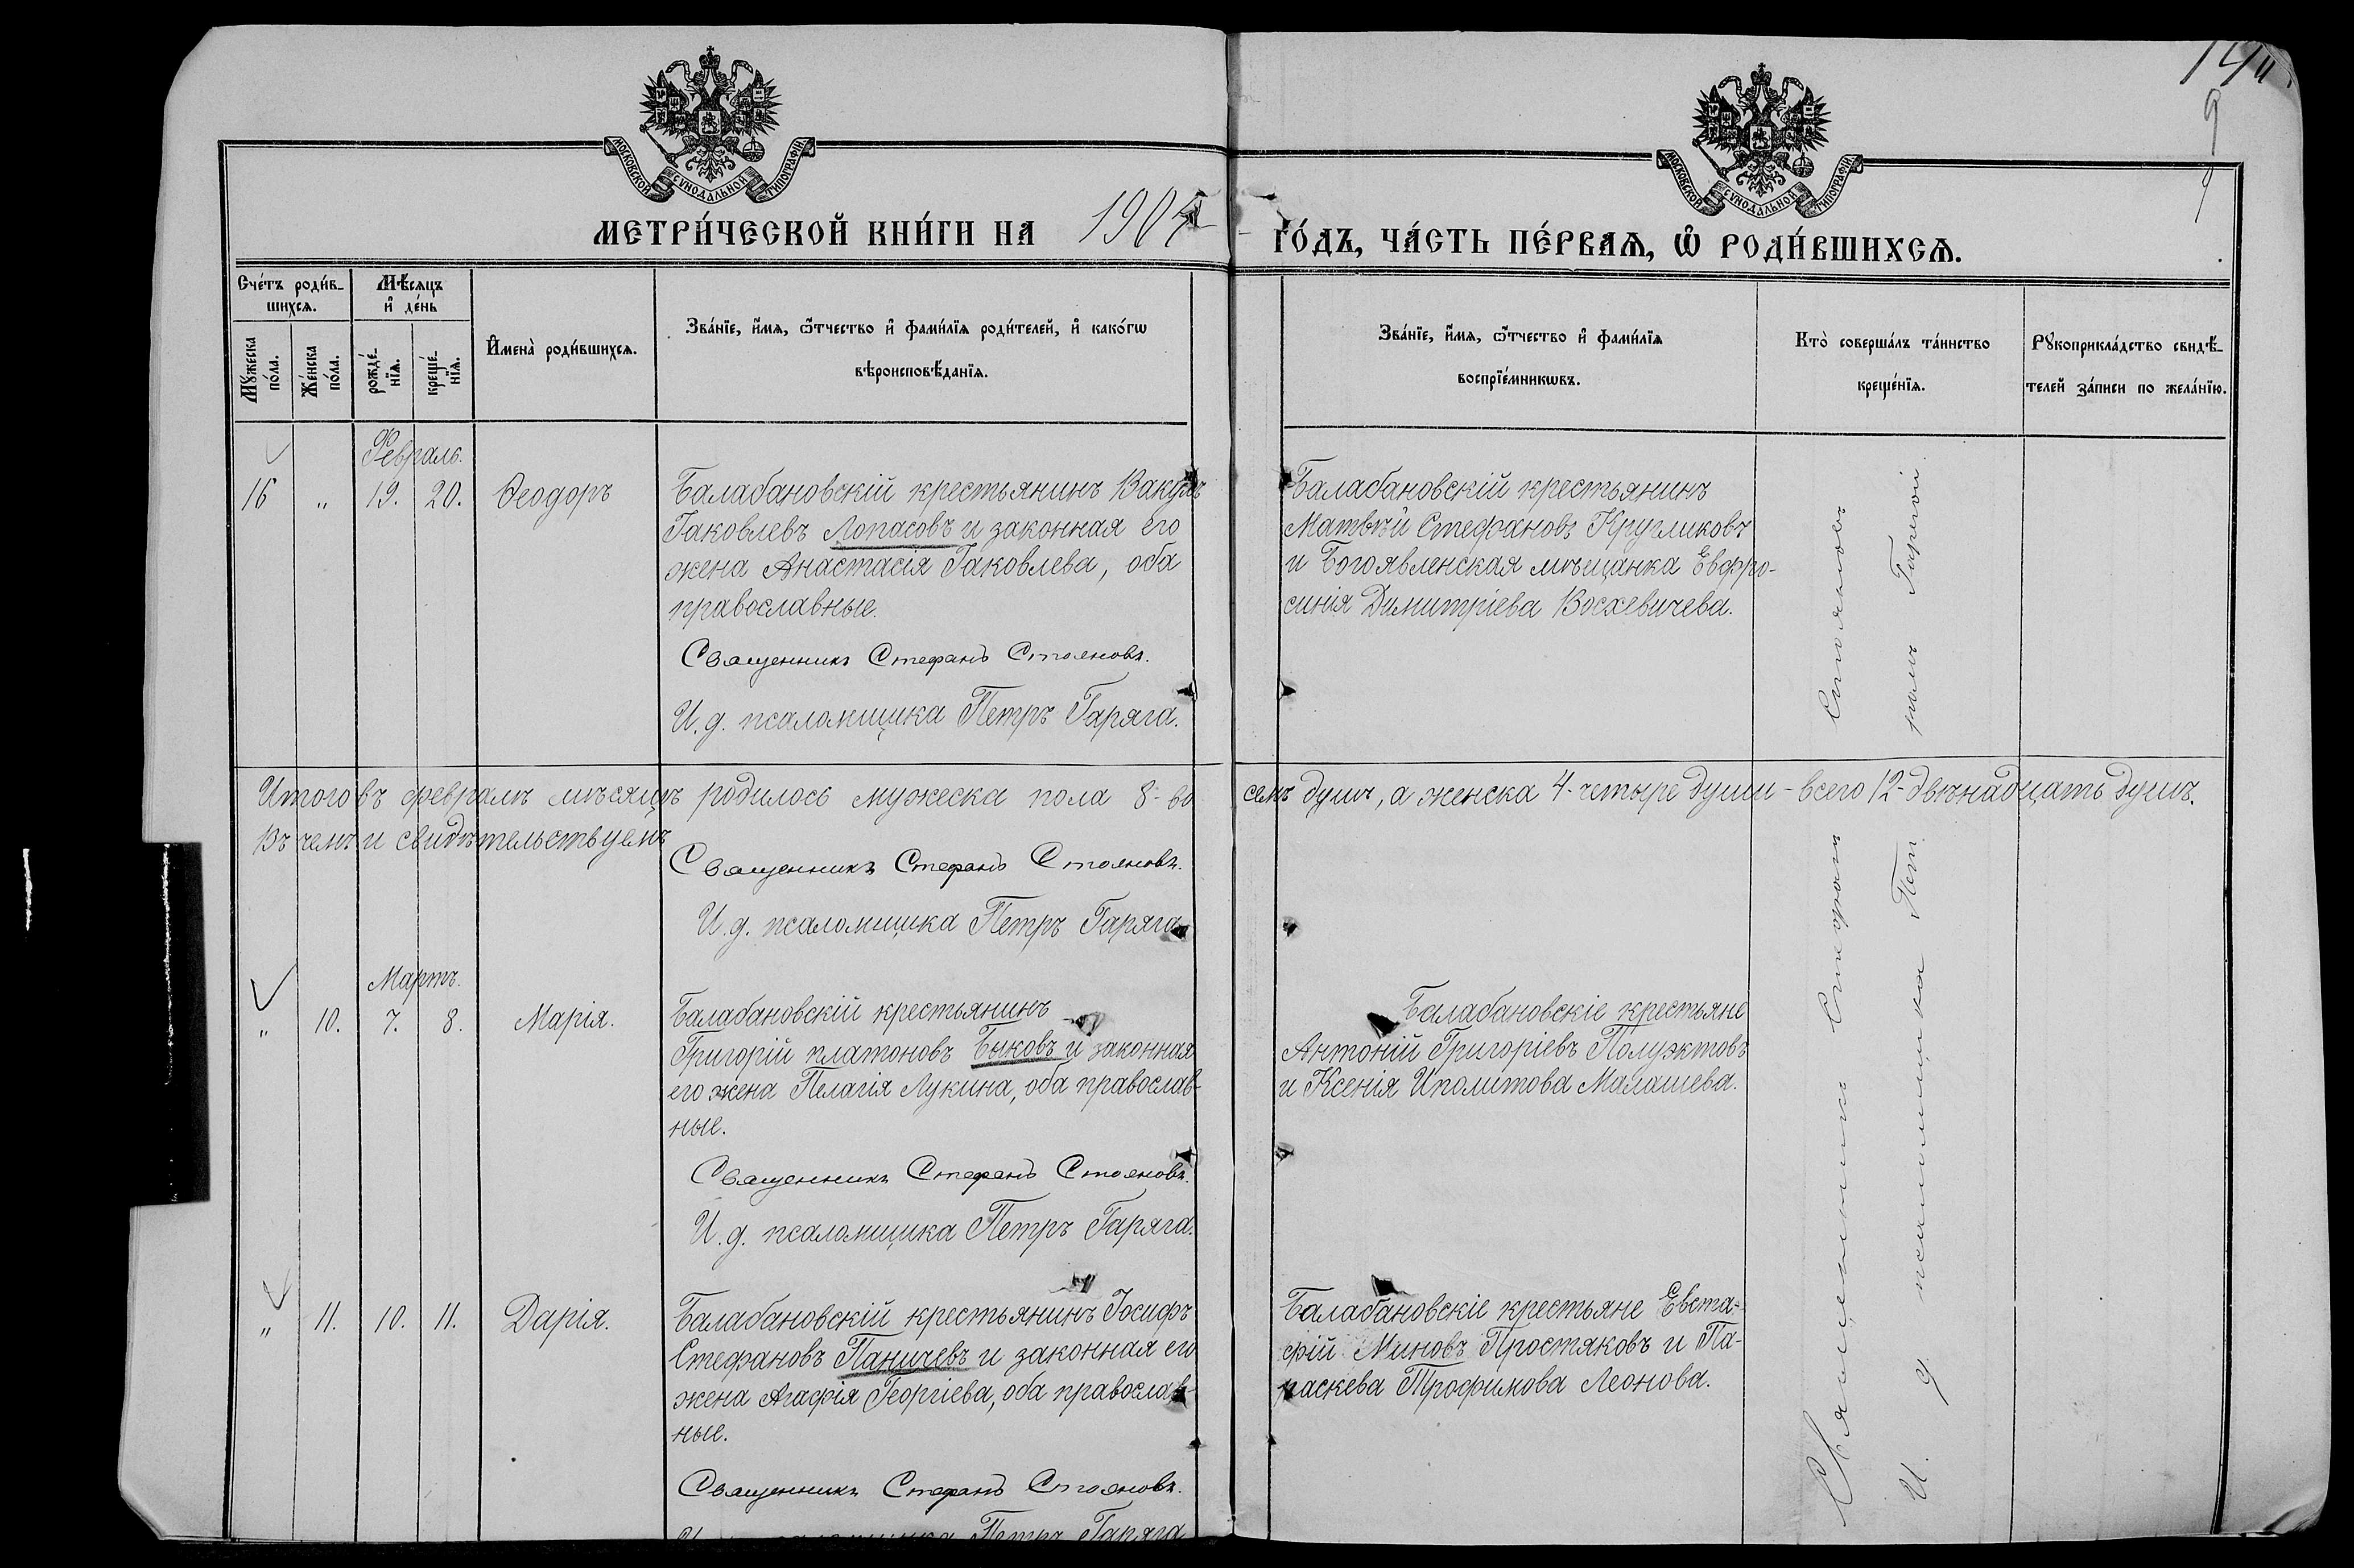 МОСКОВСКОЙ СѴНОДАЛЬНОЙ ТИПОГРАФІИ.
МОСКОВСКОЙ СѴНОДАЛЬНОЙ ТИПОГРАФІИ.
МЕТРИ́ЧЕСКОЙ КНИ́ГИ НА
ГО́ДЪ, ЧА́СТЬ ПЕ́РВАѦ, Ѡ҆ РОДИ́ВШИХСѦ.
Сче́тъ роди́в-
шихсѧ.
Мꙋ́жеска
по́ла.
Же́нска
по́ла.
Мѣ́сѧцъ
и҆ де́нь
рожде́-
нїѧ.
креще́-
нїѧ.
И҆мена̀ роди́вшихсѧ.
Зва́нїе, и҆́мѧ, ѻ҆́тчество и҆ фами́лїѧ роди́телей, и҆ како́гѡ
вѣроисповѣ́данїѧ.
Зва́нїе, и҆́мѧ, ѻ҆́тчество и҆ фами́лїѧ
воспрїе́мникѡвъ.
Кто̀ соверша́лъ та́инство
креще́нїѧ.
Рꙋкоприкла́дство свидѣ́-
телей за́писи по жела́нїю.
Февраль.
16 " 19. 20. Ѳеодоръ
Балабановскій крестьянинъ Вакулъ
Іаковлевъ Лопасовъ и законная его
жена Анастасія Іаковлева, оба
православные.
Священникъ Стефанъ Стояновъ.
И. д. псаломщика Петръ Гаряга.
Балабановскій крестьянинъ
Матвѣй Стефановъ Кругликовъ
и Богоявленская мѣщанка Евфро-
синія Димитріева Восхевичева.
Итого въ февралѣ мѣсяцѣ родилось мужеска пола 8-во семь душъ, а женска 4-четыре души - всего 12-двѣнадцать душъ.
Въ чемъ и свидѣтельствуемъ
Священникъ Стефанъ Стояновъ.
И. д. псаломщика Петръ Гаряга
Мартъ.
" 10. 7. 8. Марія.
Балабановскій крестьянинъ
Григорій Платоновъ Быковъ и законная
его жена Пелагія Лукина, оба православ-
ные.
Священникъ Стефанъ Стояновъ.
И. д. псаломщика Петръ Гаряга.
Балабановскіе крестьяне
Антоній Григоріевъ Полуэктовъ
и Ксенія Иполитова Малашева.
" 11. 10. 11. Дарія.
Балабановскій крестьянинъ Іосифъ
Стефановъ Паничевъ и законная его
жена Агафія Георгіева, оба православ-
ные.
Священникъ Стефанъ Стояновъ.
Петръ Гаряга
Балабановскіе крестьяне Евста-
фій Миновъ Простяковъ и Па-
раскева Трофимова Леонова.
Священникъ Стефанъ Стояновъ
И. д. псаломщика Гарягой